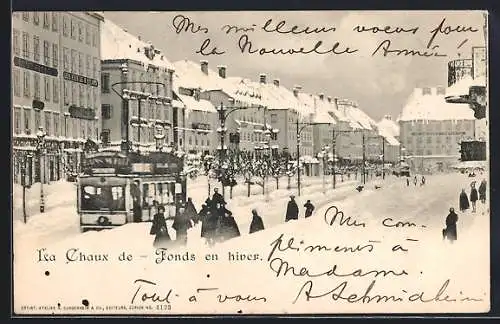 Mes meilleurs voeux pour
la Nouvelle Année!
Mes com-
pliments à
Madame.
Tout à vous
A Schmidheim
La Chaux de - Fonds en hiver.